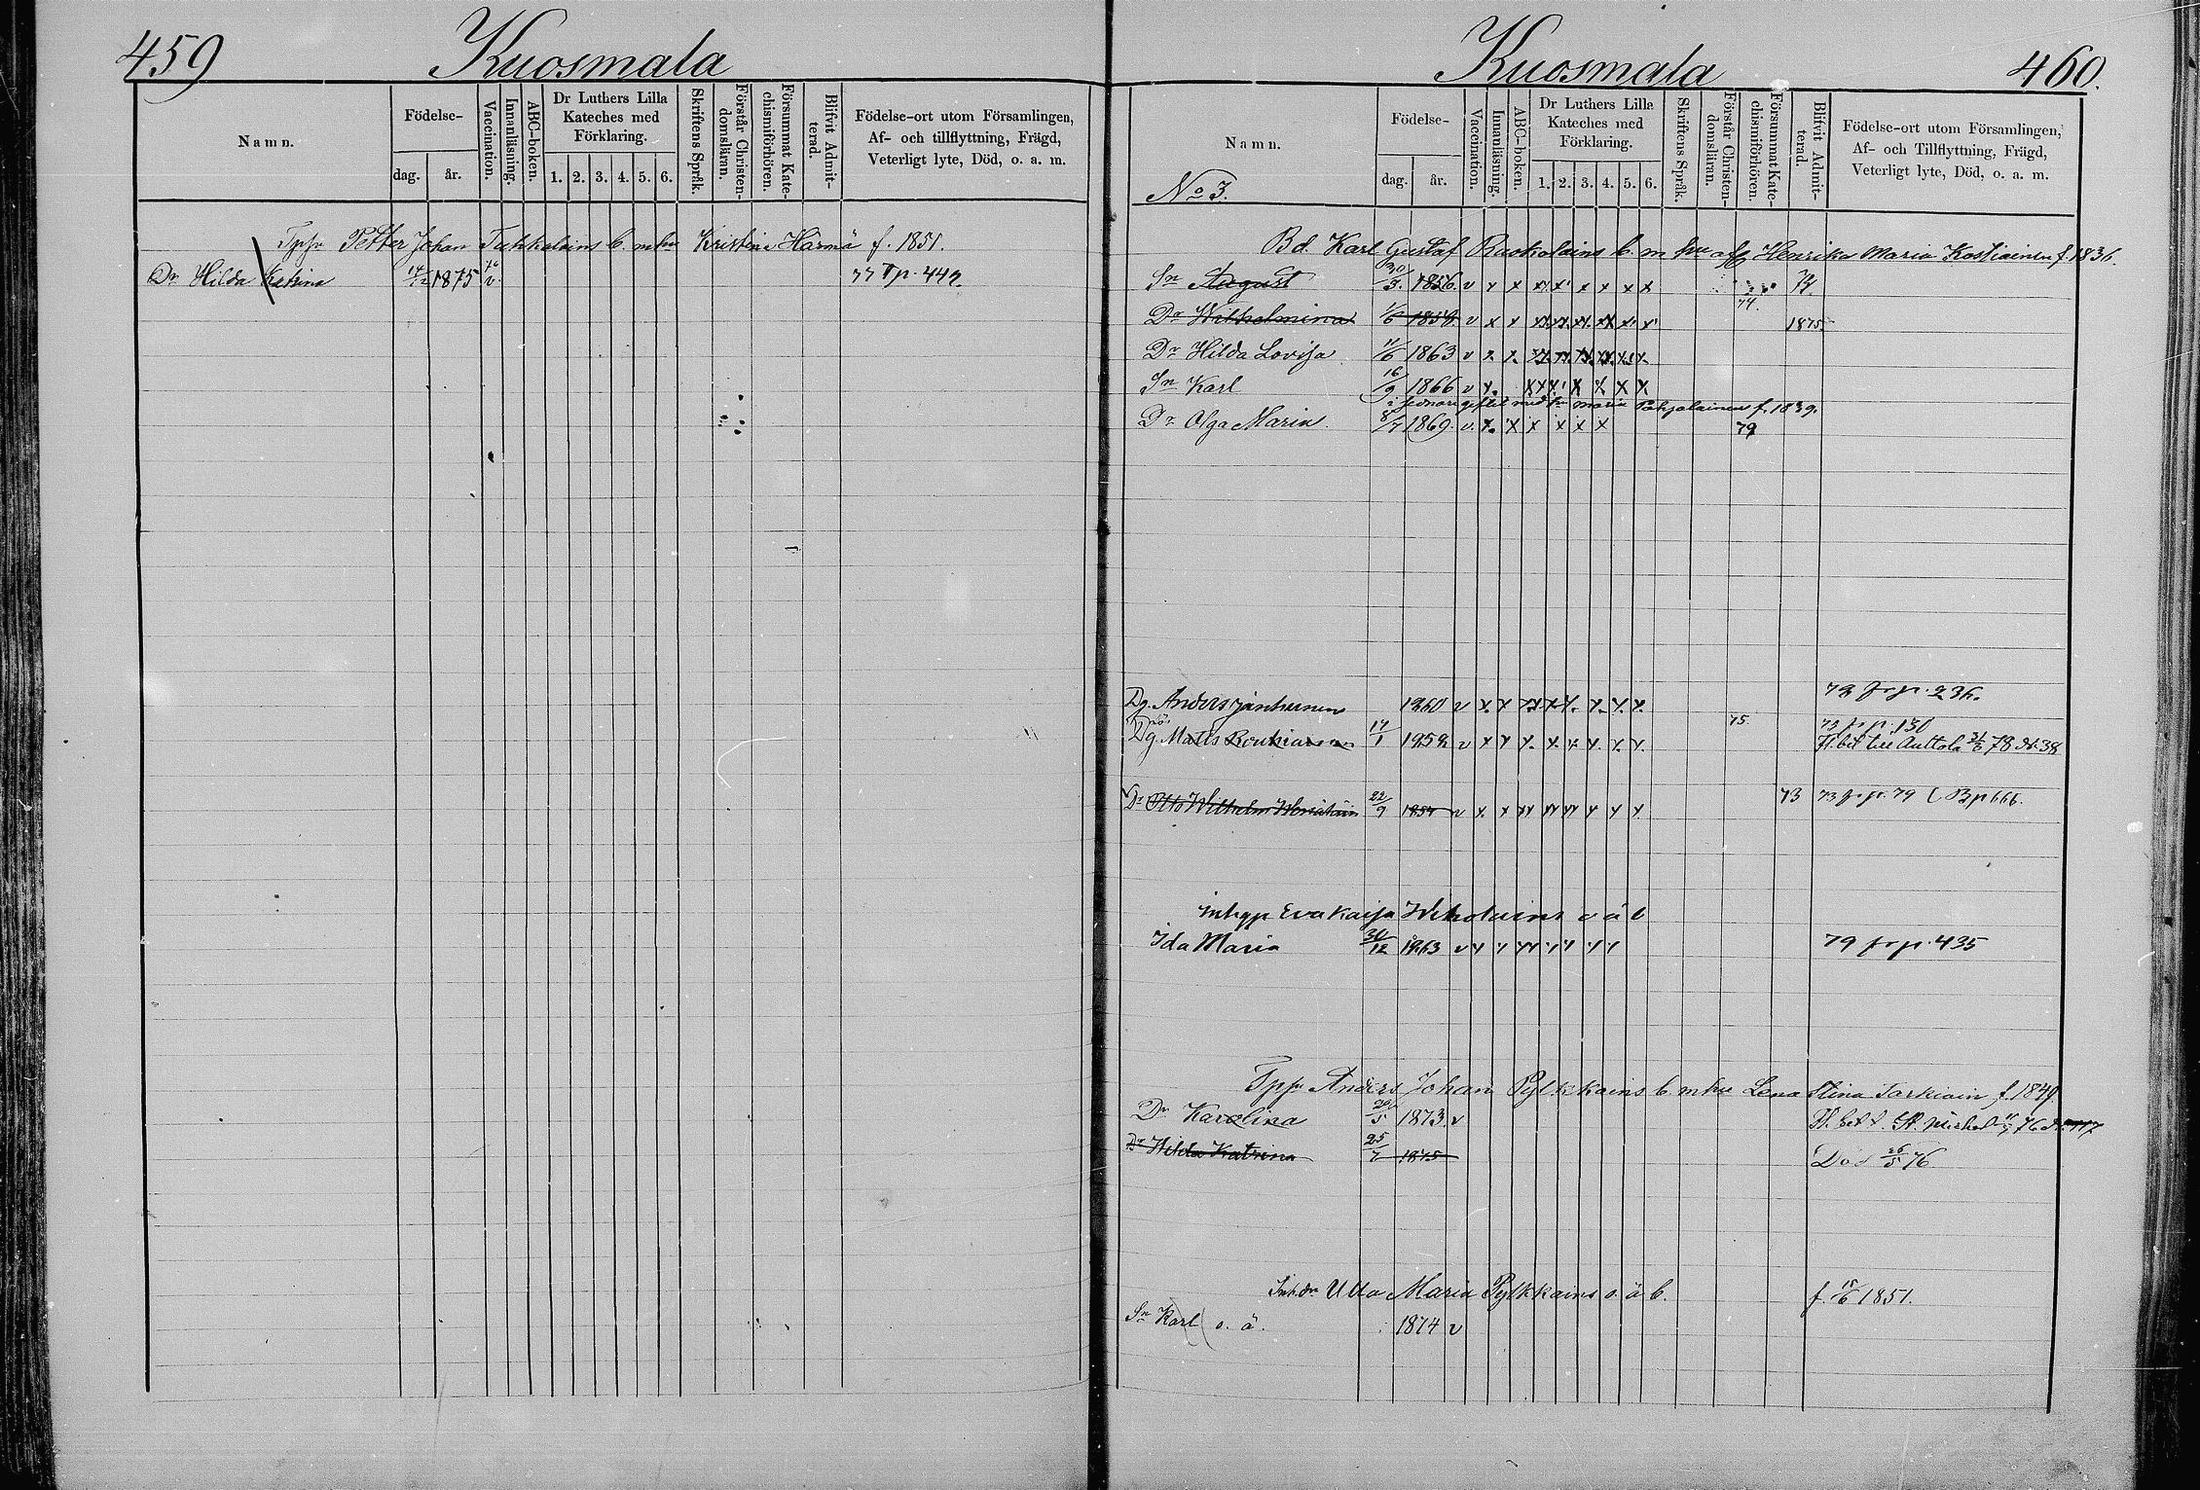 459 Kuosmala
Namn. Födelse- dag. år. Vaccination. Innanläsning. ABC-boken. Dr Luthers Lilla Kateches med Förklaring. 1. 2. 3. 4. 5. 6. Skriftens Språk. Förstår Christendomsläran. Försummat Katechismiförhören. Blifvit Admitterad. Födelse-ort utom Församlingen, Af- och tillflyttning, Frägd, Veterligt lyte, Död, o. a. m.
Petter Johan b. m hu Kristina Härmä f. 1851.
Dr Hilda 1875 v 77 Tp. 442.
Kuosmala 460.
Namn. Födelse- dag. år. Vaccination. Innanläsning. ABC-boken. Dr Luthers Lilla Kateches med Förklaring. 1. 2. 3. 4. 5. 6. Skriftens Språk. Förstår Christendomsläran. Försummat Katechismiförhören. Blifvit Admitterad. Födelse-ort utom Församlingen, Af- och Tillflyttning, Frägd, Veterligt lyte, Död, o. a. m.
No 3.
Bd. Karl Gustaf Ruokolains b. m hu Henrika Maria Kostiainen f. 1836.
Sn August 30/3. 1856. v x x x x x x x x 74.
Dr Wilhelmina 1/6 v x x x x x x x x 1875.
Dr Hilda Lovisa 11/6 1863 v x x x x x x x x
Sn Karl 16/9 1866 v x. x x x x x x x
giftet med Maria Pohjolainen f. 1839.
Dr Olga Maria 8/7 1869. v. x. x x x x x 79
Dg. Anders 1860 v x x x x x x x x fr p. 236.
Dg. Matts 17/1 v x x x x x x x x 75. fr p. 130
Fl. bet till Anttola 78 38
Otto Wilhelm 22/9 1854 v x x x x x x x x 73 73 fr p. 79 Bp 666.
Eva Kaisa o ä b
Ida Maria 30/12 1863 v x x x x x x x x 79 fr p. 435
Anders Johan Pylkkäins b. m hu Lena Stina f. 1849.
Dr Karolina 1873. v Fl. bet t. St. Michel 76
Dr Hilda Katrina 25/7 1875 Död 26/5 76.
Ulla Maria Pylkkäins o. ä b. f. 1851.
Sn Karl o. ä. 1874 v